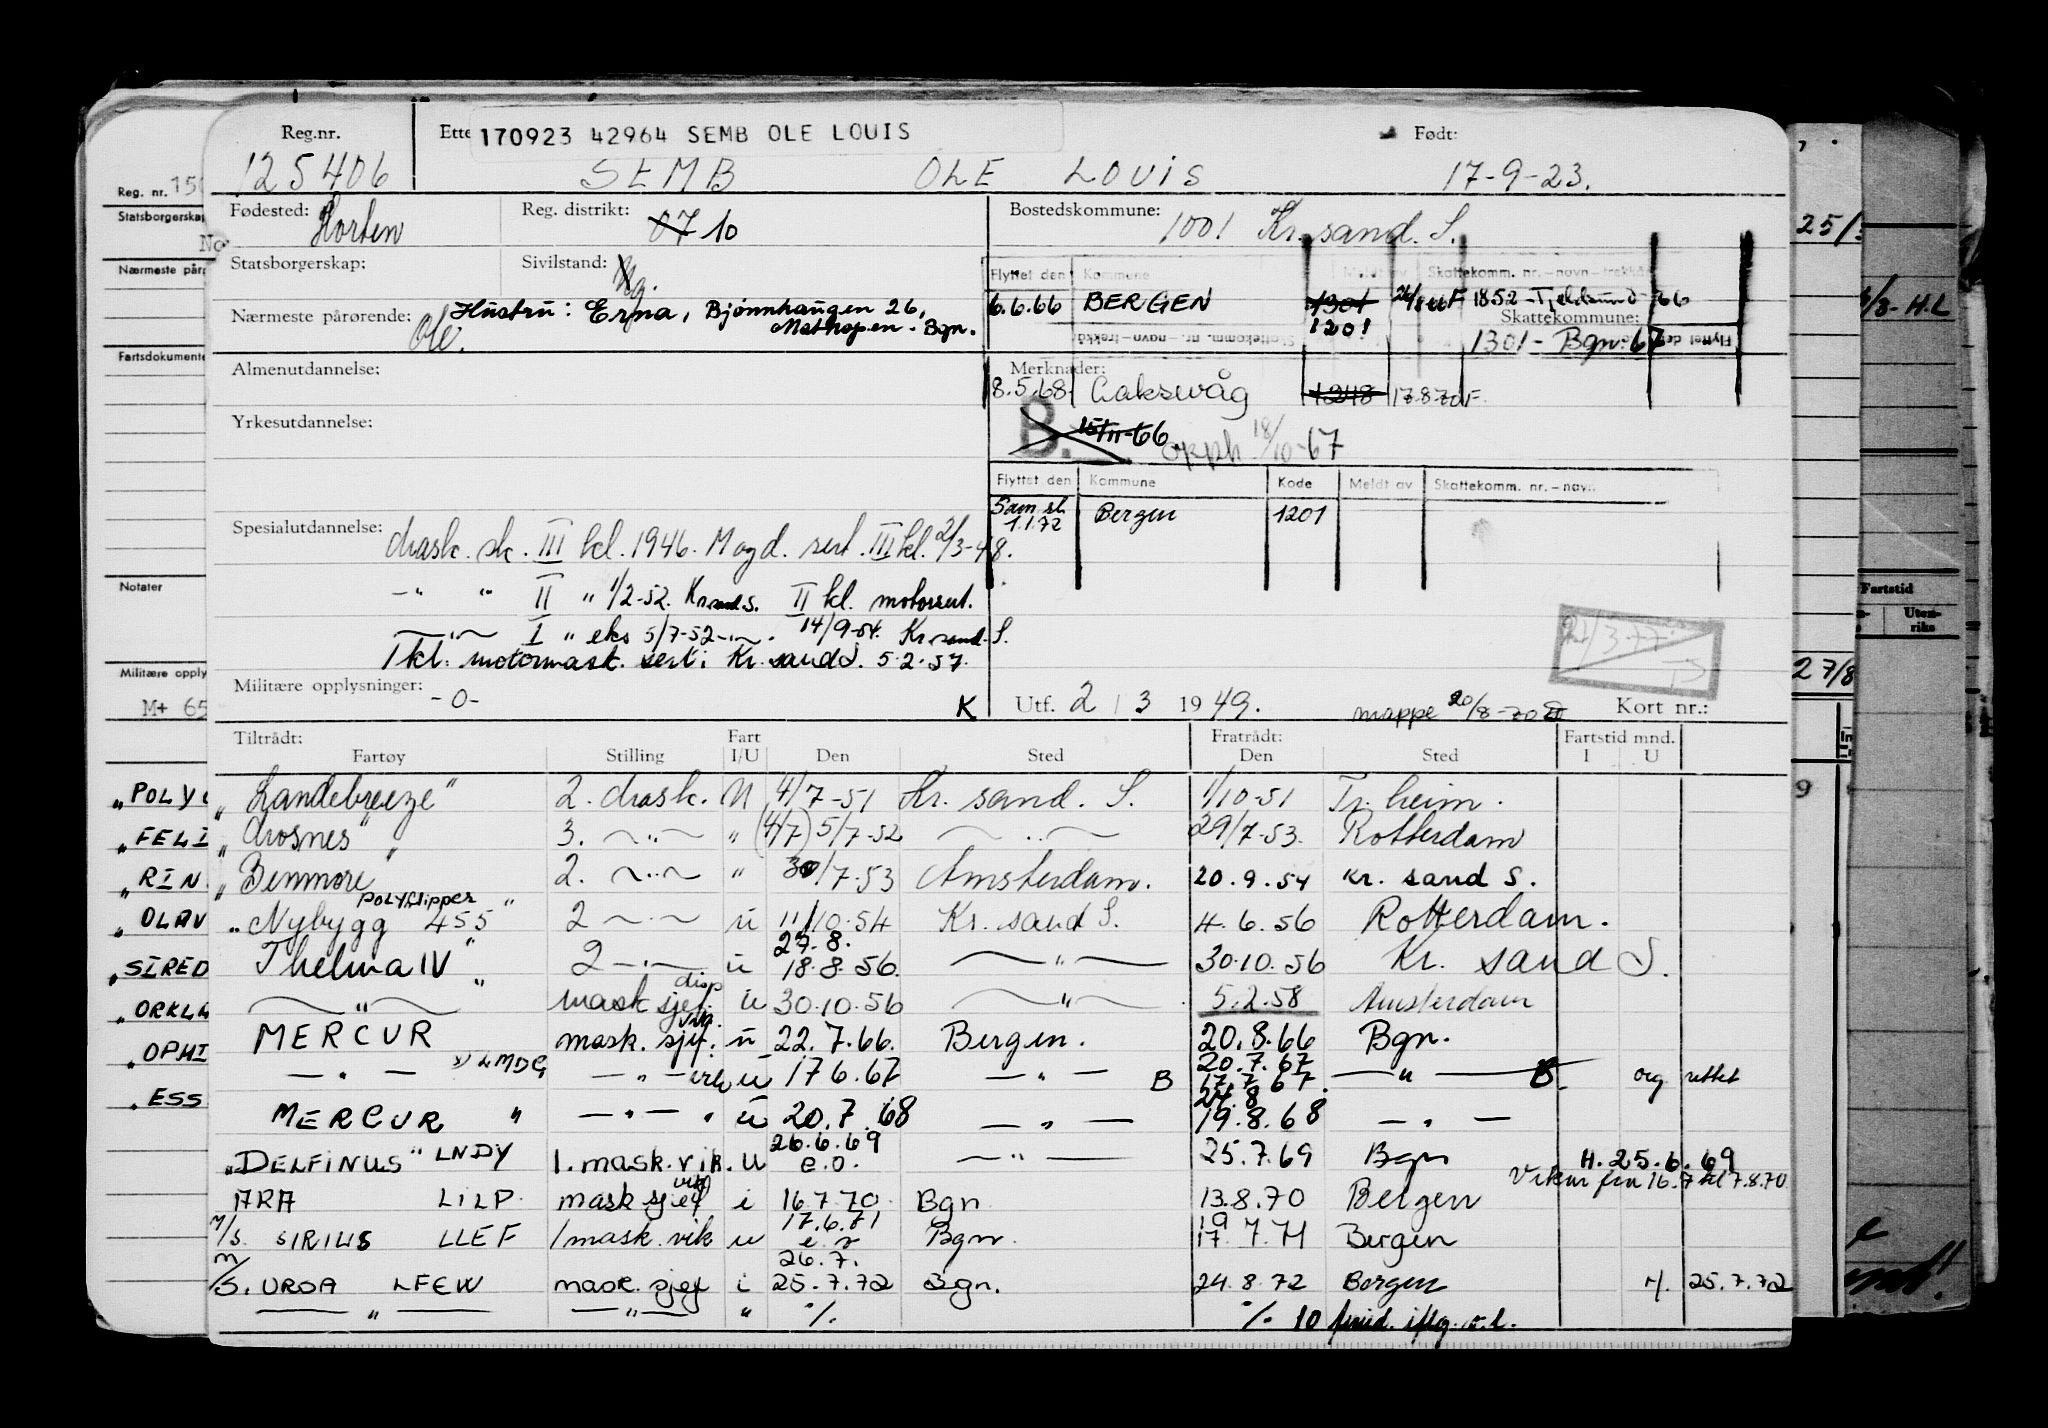 Reg.nr. Ette 170923 42964 SEMB OLE LOUIS Født:
125406 SEMB OLE LOUIS 17-9-23.
Fødested: Horten Reg. distrikt: 07 10 Bostedskommune: 1001 Kr. sand. S.
Statsborgerskap: Sivilstand: Flyttet den Kommune Meldt av Skattekomm. nr.-navn-trekkår
Nærmeste pårørende: Hustru: Erna, Bjønnhaugen 26, 6.6.66 BERGEN 1301 1852-Tjeldsund 66
Ole. Mathopen - Bgn. 1201 Skattekommune:
1301 - Bgn. 67
Almenutdannelse: Merknader:
8.5.68 Laksevåg 1248 17.8.70 F.
Yrkesutdannelse: B. 15/11-66 opph 18/10-67
Flyttet den Kommune Kode Meldt av Skattekomm. nr.-navn
Sam.sl. 1.1.72 Bergen 1201
Spesialutdannelse: Mask. sk. III kl. 1946. Mogd. sert. III kl. 2/3-48.
-"- " II " 1/2-52. Kr.sand.S. II kl. motorsert.
-"- I " eks 5/7-52 -"-. 14/9-54. Kr.sand.S.
I kl. motormask. sert: Kr.sand S. 5.2.57.
Militære opplysninger: -0- K Utf. 2 / 3 1949. mappe 20/8-70 Kort nr.:
Tiltrådt: Fart Fratrådt: Fartstid mnd.
Fartøy Stilling I/U Den Sted Den Sted I U
„Landebreeze" 2. mask. U 4/7-51 Kr. sand. S. 1/10-51 Tr. heim.
„Mosnes" 3. -"- " (4/7) 5/7-52 -"- 29/7-53. Rotterdam
„Benmore" 2. -"- " 30/7-53 Amsterdam. 20.9.54 Kr. sand S.
Polyclipper
„Nybygg 455" 2 -"- u 11/10-54 Kr. sand S. 4.6.56 Rotterdam.
27.8.
Thelma IV" 2 -"- u 18.8.56. -"- 30.10.56 Kr. sand S.
disp
-"- mask sjef. u 30.10.56 -"- 5.2.58 Amsterdam
vik.
MERCUR mask. sjef. u 22.7.66. Bergen. 20.8.66 Bgn.
20.7.67
-"- LMDG -"- vik u 17 6.67 -"- B 17.7.67. -"- B. og rettet
24.8
MERCUR " -"- " u 20.7.68 -"- 19.8.68 -"-
26.6.69
„DELFINUS" LNDY 1. mask. vik. u e.o. -"- 25.7.69 Bgn H. 25.6.69
vik Vikar fra 16.7 til 7.8.70
ARA LILP. mask sjef i 16 7 70 Bgn 13.8.70 Bergen
17.6.71 19
M/S. SIRIUS LLEF 1 mask. vik u Bgn. 17.7.71 Bergen
26.7.
m/S. URSA LFEW mask. sjef i 25.7.72 Bgn. 24.8.72 Bergen 25.7.72
-"- -"- " %. %. 10
Reg. nr. 150
Statsborgerskap
No
Nærmeste pårø
Fartsdokumente
Notater
Militære opply
M+ 65
„POLY
„FELI
„RIN
„OLAV
„SIRED
„ORKLA
„OPHI
„ESS
25/
/8-H.L
Fartstid
Uten-
riks
27/8
9